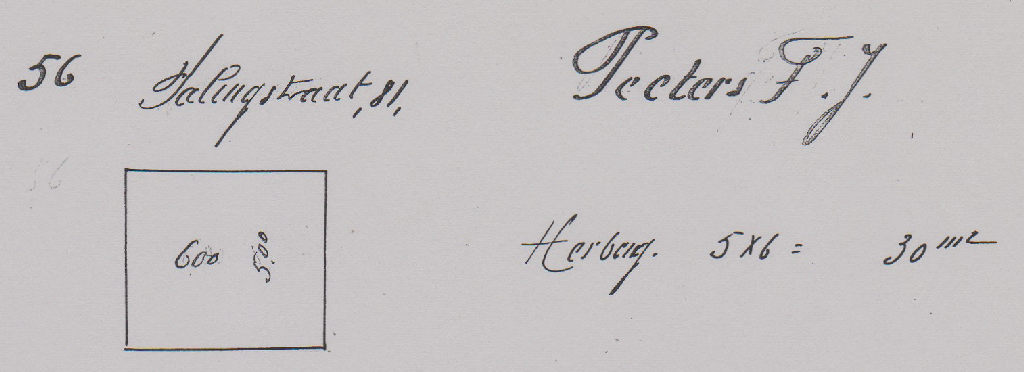 56 Palingstraat, 81, Peeters F. J.
56
600 5.00 Herbag. 5 x 6 = 30 m2